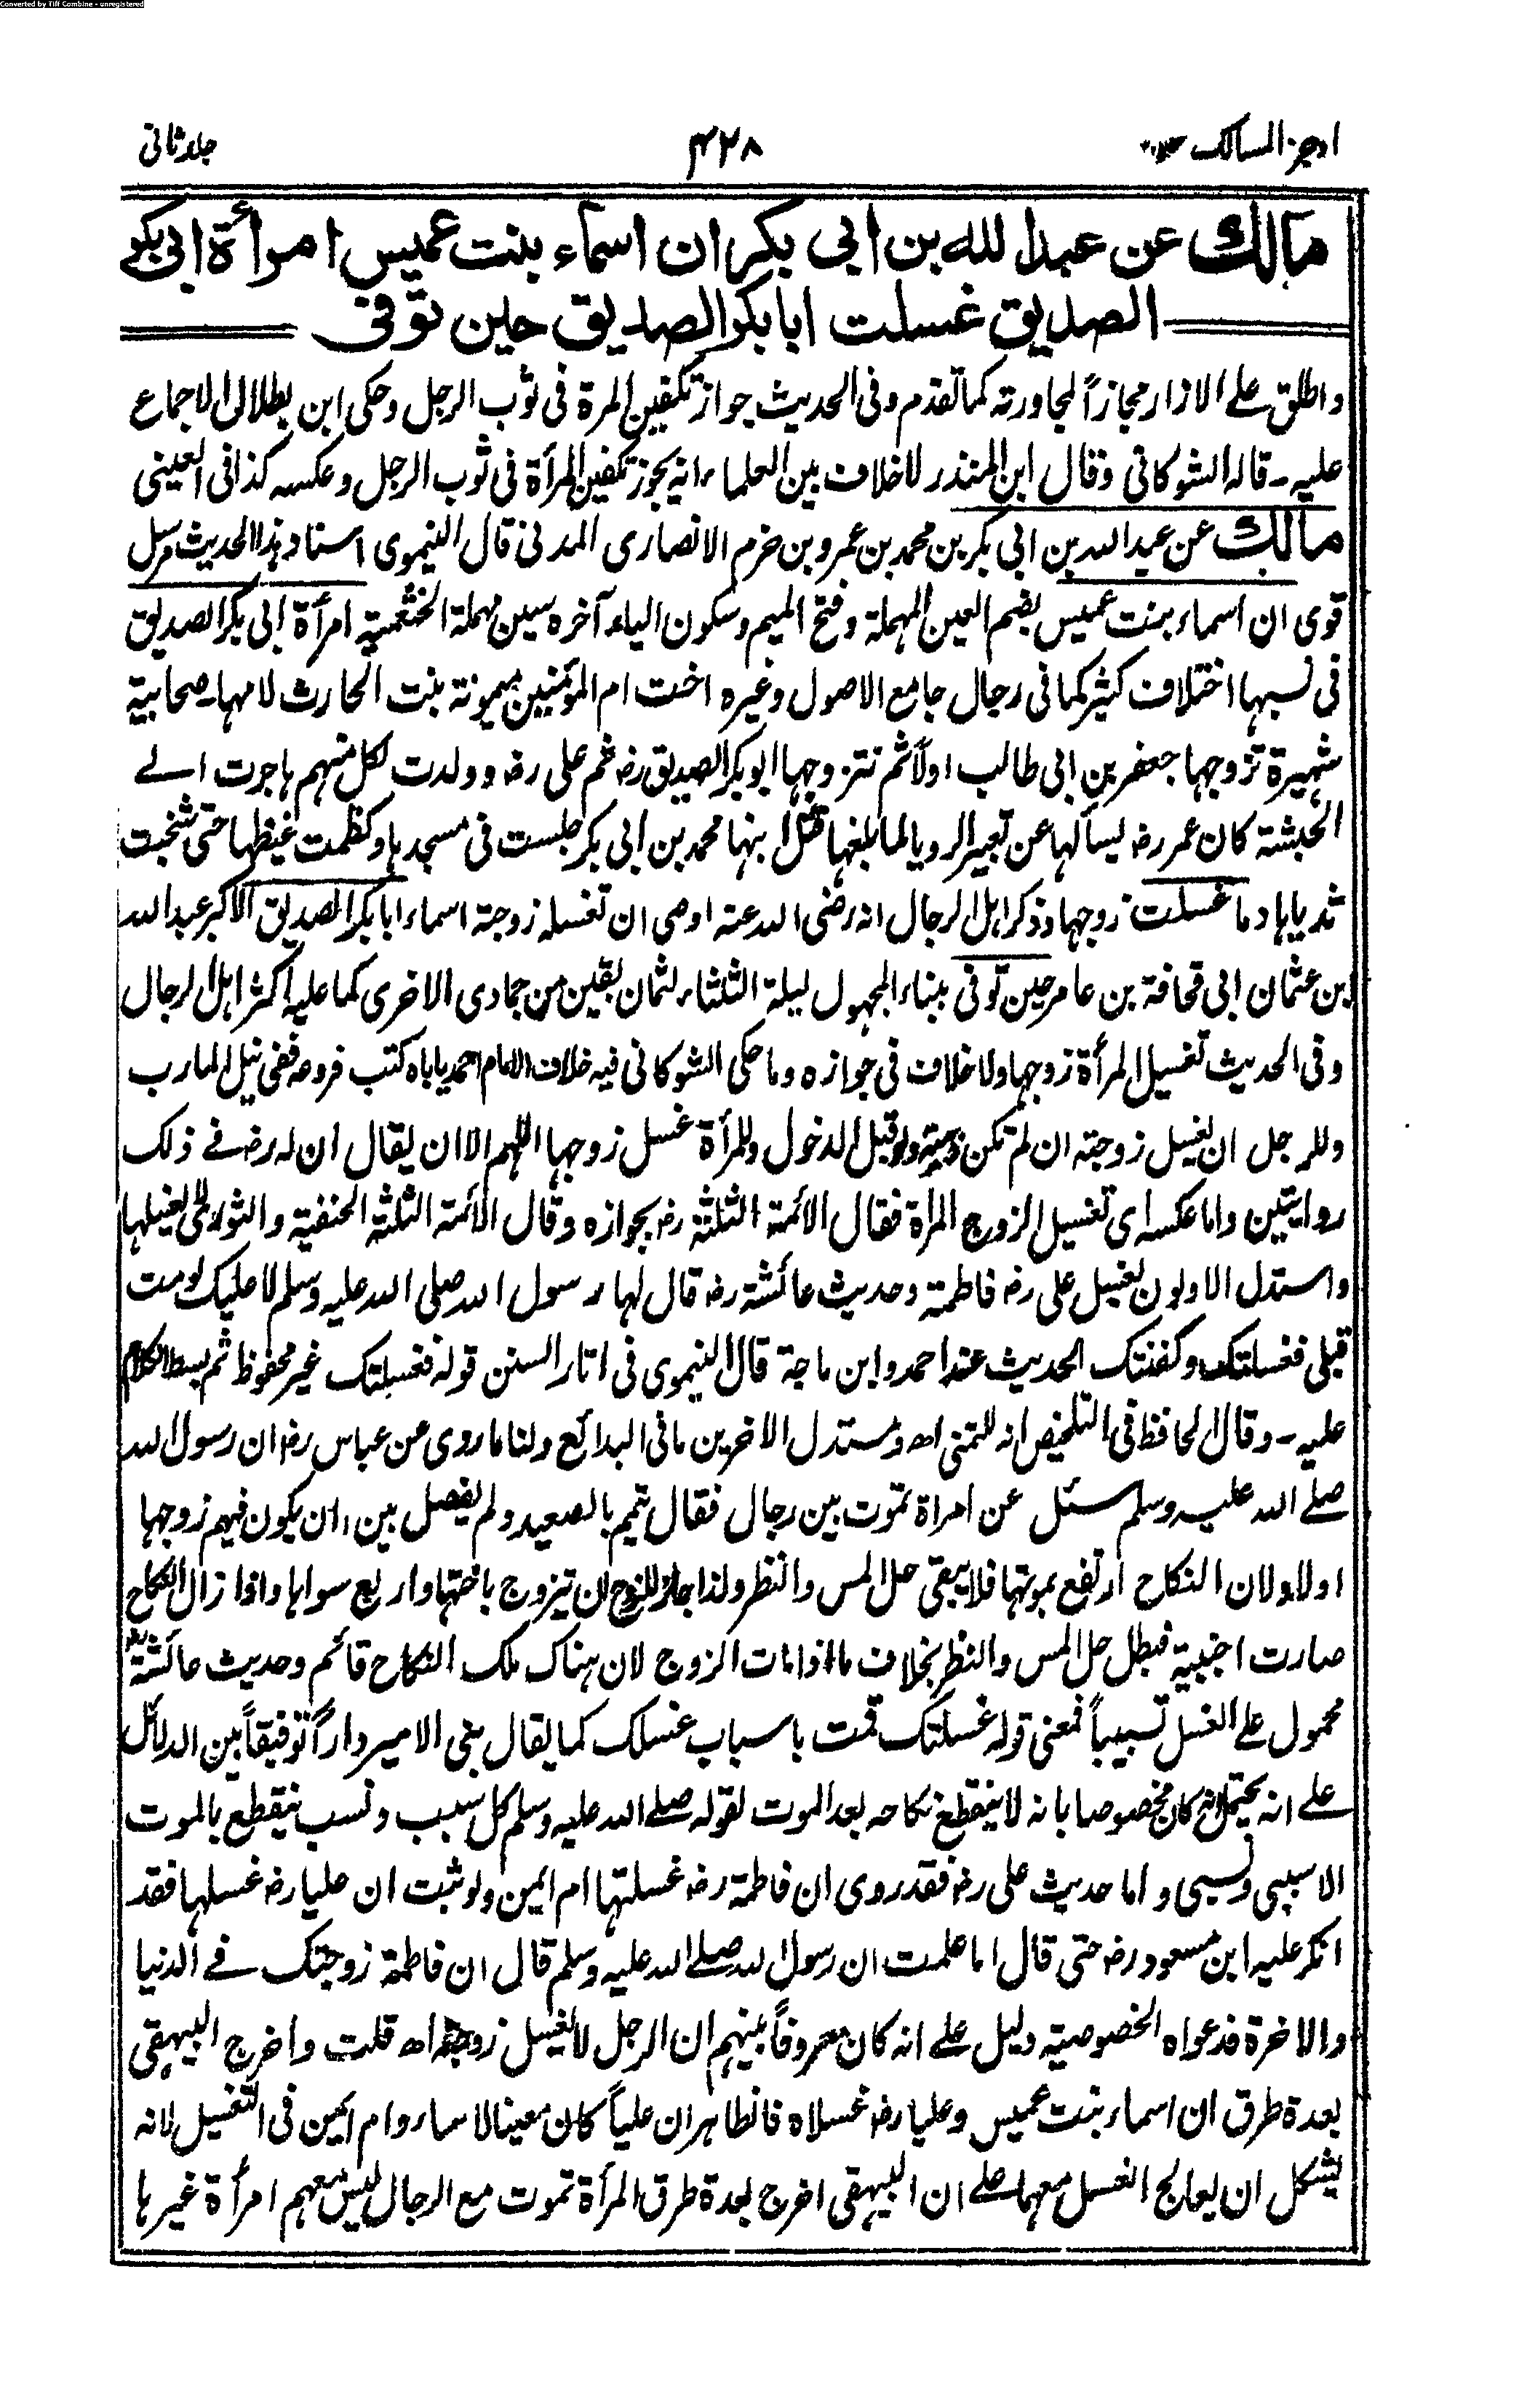 Converted by Tiff Combine - unregistered
اوجز المسالک جلد ثانی ۴۲۸
مالك عن عبد الله بن ابي بكر ان اسماء بنت عميس امرأة ابي بكر
الصديق غسلت ابا بكر الصديق حين توفى
واطلق على الازار مجازاً لمجاورته كما تقدم وفى الحديث جواز تكفين المرة فى ثوب الرجل وحكى ابن بطال الاجماع
عليه - قاله الشوكانى وقال ابن المنذر لا خلاف بين العلماء انه يجوز تكفين المرأة فى ثوب الرجل وعكسه كذا فى العينى
مالك عن عبد الله بن ابى بكر بن محمد بن عمرو بن حزم الانصارى المدنى قال النيموى اسناد هذا الحديث مرسل
قوى ان اسماء بنت عميس بضم العين المهملة وفتح الميم وسكون الياء آخره سين مهملة الخثعمية امرأة ابى بكر الصديق
فى نسبها اختلاف كثير كما فى رجال جامع الاصول وغيره اخت ام المؤمنين ميمونة بنت الحارث لامها صحابية
شهيرة تزوجها جعفر بن ابى طالب اولاً ثم تزوجها ابو بكر الصديق رض ثم على رض وولدت لكل منهم هاجرت الے
الحبشة كان عمر رض يسألها عن تعبير الرويا لما بلغها قتل ابنها محمد بن ابى بكر جلست فى مسجدها وكظمت غيظها حتى شخبت
ثدياها دما غسلت زوجها وذكر اهل الرجال انه رضى الله عنه اوصى ان تغسله زوجة اسماء ابا بكر الصديق الاكبر عبد الله
بن عثمان ابى قحافة بن عامر حين توفى ببناء المجهول ليلة الثلثاء لثمان بقين من جمادى الاخرى كما عليه اكثر اهل الرجال
وفى الحديث تغسيل المرأة زوجها ولا خلاف فى جوازه وما حكى الشوكانى فيه خلاف الامام احمد ياباه كتب فروعه ففى نيل المارب
وللرجل ان يغسل زوجته ان لم تكن ذمية ولو قبل الدخول وللمرأة غسل زوجها اللهم الا ان يقال ان له رض فے ذلك
روايتين واما عكسه اى تغسيل الزوج المرأة فقال الائمة الثلثة رض بجوازه وقال الائمة الثلثة الحنفية والثورى لا يغسلها
واستدل الاولون بغسل على رض فاطمة وحديث عائشة رض قال لها رسول الله صلى الله عليه وسلم لا عليك لو مت
قبلى فغسلتك وكفنتك الحديث عند احمد وابن ماجة قال النيموى فى اثار السنن قوله فغسلتك غير محفوظ ثم بسط الكلام
عليه - وقال الحافظ فى التلخيص انه للتمنى اھ ومستدل الاخرين ما فى البدائع ولنا ما روى عن عباس رض ان رسول الله
صلے الله عليه وسلم سئل عن امراة تموت بين رجال فقال تيمم بالصعيد ولم يفصل بين ان يكون فيهم زوجها
اولا ولان النكاح ارتفع بموتها فلا يبقى حل المس والنظر ولذا جاز للزوج ان تيزوج باختها واربع سواها واذا زال النكاح
صارت اجنبية فبطل حل المس والنظر بخلاف ما اذا مات الزوج لان هناك ملك النكاح قائم وحديث عائشة رض
محمول علے الغسل تسبيباً فمعنى قوله غسلتك قمت باسباب غسلك كما يقال بنى الامير داراً توفيقاً بين الدلائل
علے انه يحتمل انه كان مخصوصا بانه لا ينقطع نكاحه بعد الموت لقوله صلے الله عليه وسلم كل سبب ونسب ينقطع بالموت
الا سببى ونسبى واما حديث على رض فقد روى ان فاطمة رض غسلتها ام ايمن ولو ثبت ان عليا رض غسلها فقد
انكر عليه ابن مسعود رض حتى قال اما علمت ان رسول الله صلے الله عليه وسلم قال ان فاطمة زوجتك فے الدنيا
والاخرة فدعواه الخصوصية دليل علے انه كان معروفاً بينهم ان الرجل لا يغسل زوجته اھ قلت واخرج البيهقى
بعدة طرق ان اسماء بنت عميس وعليا رض غسلاه فالظاهر ان علياً كان معينا لاسماء وام ايمن فى التغسيل لانه
يشكل ان يعالج الغسل معهما علے ان البيهقى اخرج بعدة طرق المرأة تموت مع الرجال ليس معهم امرأة غيرها